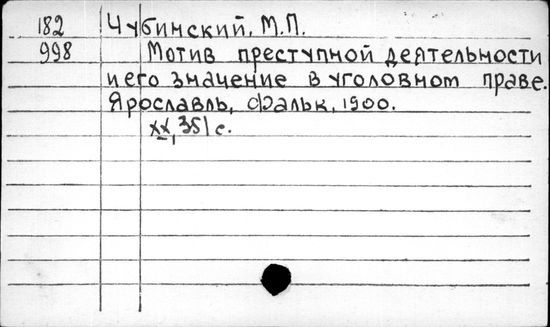 182 Чубинский, М.П.
998 Мотив преступной деятельности
и его значение в уголовном праве.
Ярославль, Фальк, 1900.
XX, 351 с.